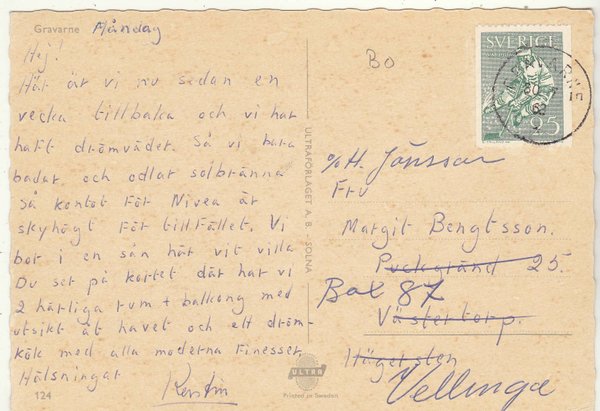 Gravarne Måndag
Hej!
Här är vi nu sedan en
vecka tillbaka och vi har
haft drömvädet. Så vi bara
badar och odlar solbränna
så kontot för Nivea är
skyhögt för tillfället. Vi
bor i en sån här vit villa
Du ser på kortet där har vi
2 härliga rum + balkong med
utsikt åt havet och ett dröm-
kök med alla moderna finesser
Hälsningar
Kerstin
124
ULTRAFÖRLAGET A. B. SOLNA
ULTRA
Printed in Sweden
Bo
SVERIGE
95
30
c/o H. Jönsson
Fru
Margit Bengtsson.
Pucksgränd 25.
Box 87
Västertorp.
Hägersten
Vellinge